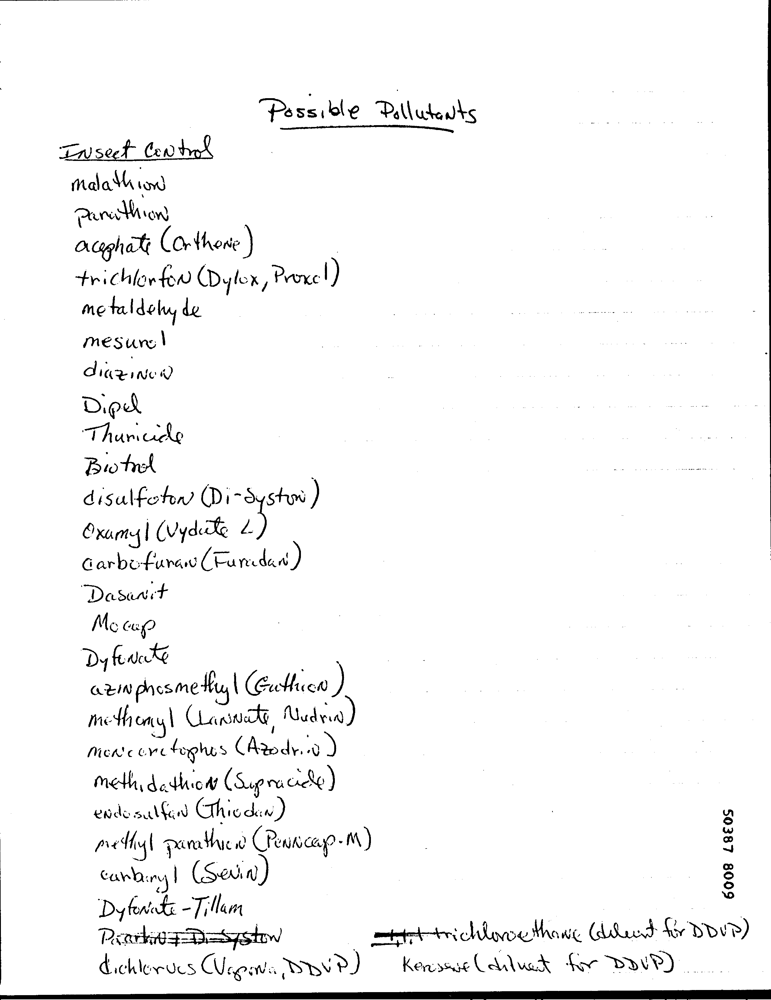 Possible Pollutants
Insect Control
malathion
parathion
acephate (Orthene)
trichlorfon (Dylox, Proxol)
metaldehyde
mesurol
diazinon
Dipel
Thuricide
Biotrol
disulfoton (Di-Syston)
Oxamyl (Vydate L)
Carbofuran (Furadan)
Dasanit
Mocap
Dyfonate
azinphosmethyl (Guthion)
methomyl (Lannate, Nudrin)
monocrotophos (Azodrin)
methidathion (Supracide)
endosulfan (Thiodan)
methyl parathion (Penncap-M)
carbaryl (Sevin)
Dyfonate-Tillam
Di-Syston 1,1,1 trichloroethane (diluent for DDVP)
dichlorvos (Vapona, DDVP) Kerosene (diluent for DDVP)
50387 8009